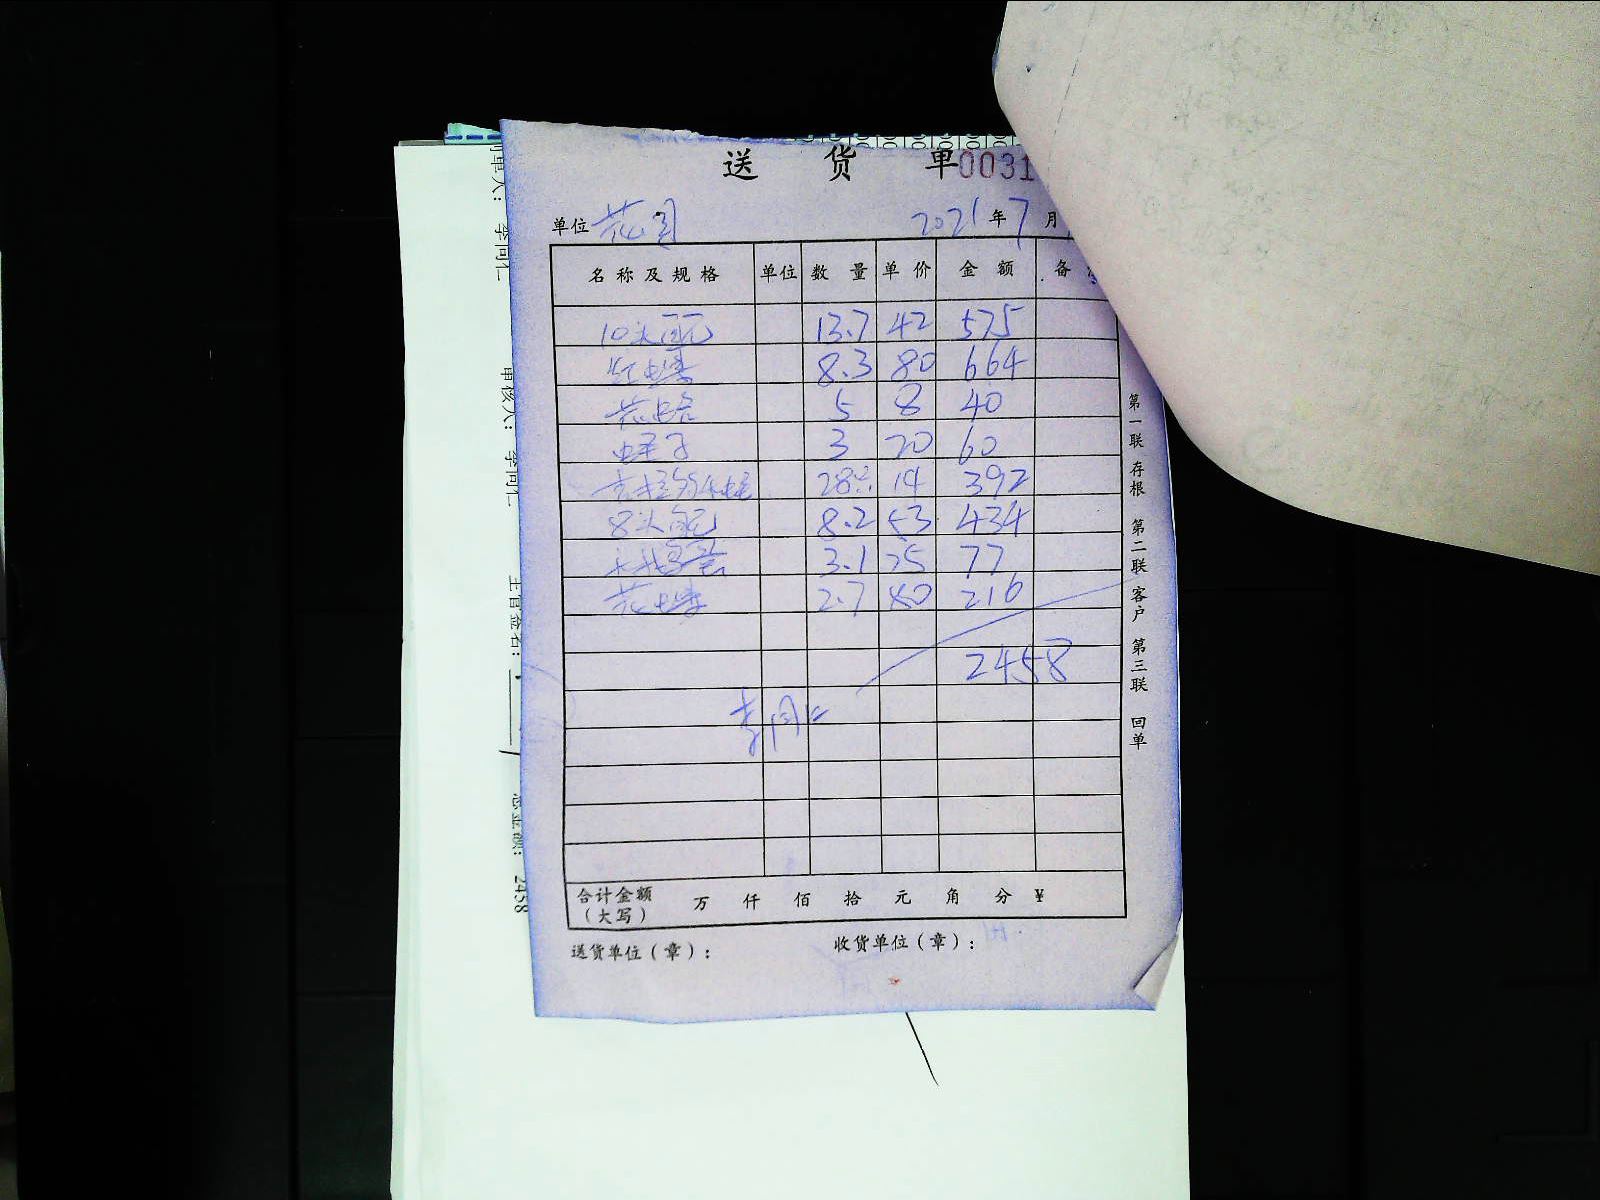 送 货 单 0031
单位 花园 2021 年 7 月
名称及规格 单位 数 量 单 价 金 额 备
10头 13.7 42 575
红 8.3 80 664
花蛤 5 8 40
蛏子 3 20 60
28 14 392
8头 8.2 53 434
3.1 25 77
花 2.7 80 216
2458
李同仁
合计金额 万 仟 佰 拾 元 角 分 ¥
（大写）
送货单位（章）： 收货单位（章）：
第一联 存根 第二联 客户 第三联 回单
李同仁
审核人： 李同仁
主管签名：
总金额： 2458